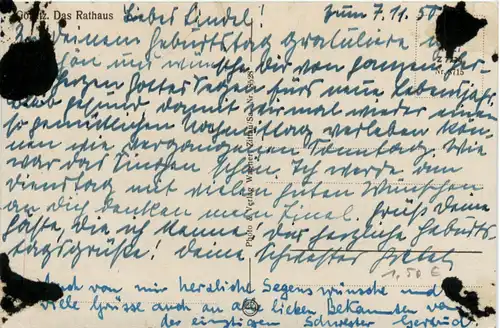 Görlitz. Das Rathaus
Liebes Lindel! zum 7.11.50
Zu deinem Geburtstag gratuliere
schön und wünsche dir von ganzem
Herzen Gottes Segen fürs neue Lebensjahr.
bleib gesund damit wir mal wieder einen
so gemütlichen Nachmittag verleben kön-
nen wie vergangenen Sonntag. Wie
war das Singen schön. Ich werde am
Dienstag mit vielen guten Wünschen
an dich denken mein Lindel. Grüß deine
Gäste, die ich kenne. herzliche Geburts
tagsgrüße! Deine Schwester
1,50 €
Auch von mir herzliche Segenswünsche und
viele Grüsse auch an alle lieben Bekannten von
der einzigen Schwester Gertrud
Photo u. Verlag Wagner, Zittau/Sa.